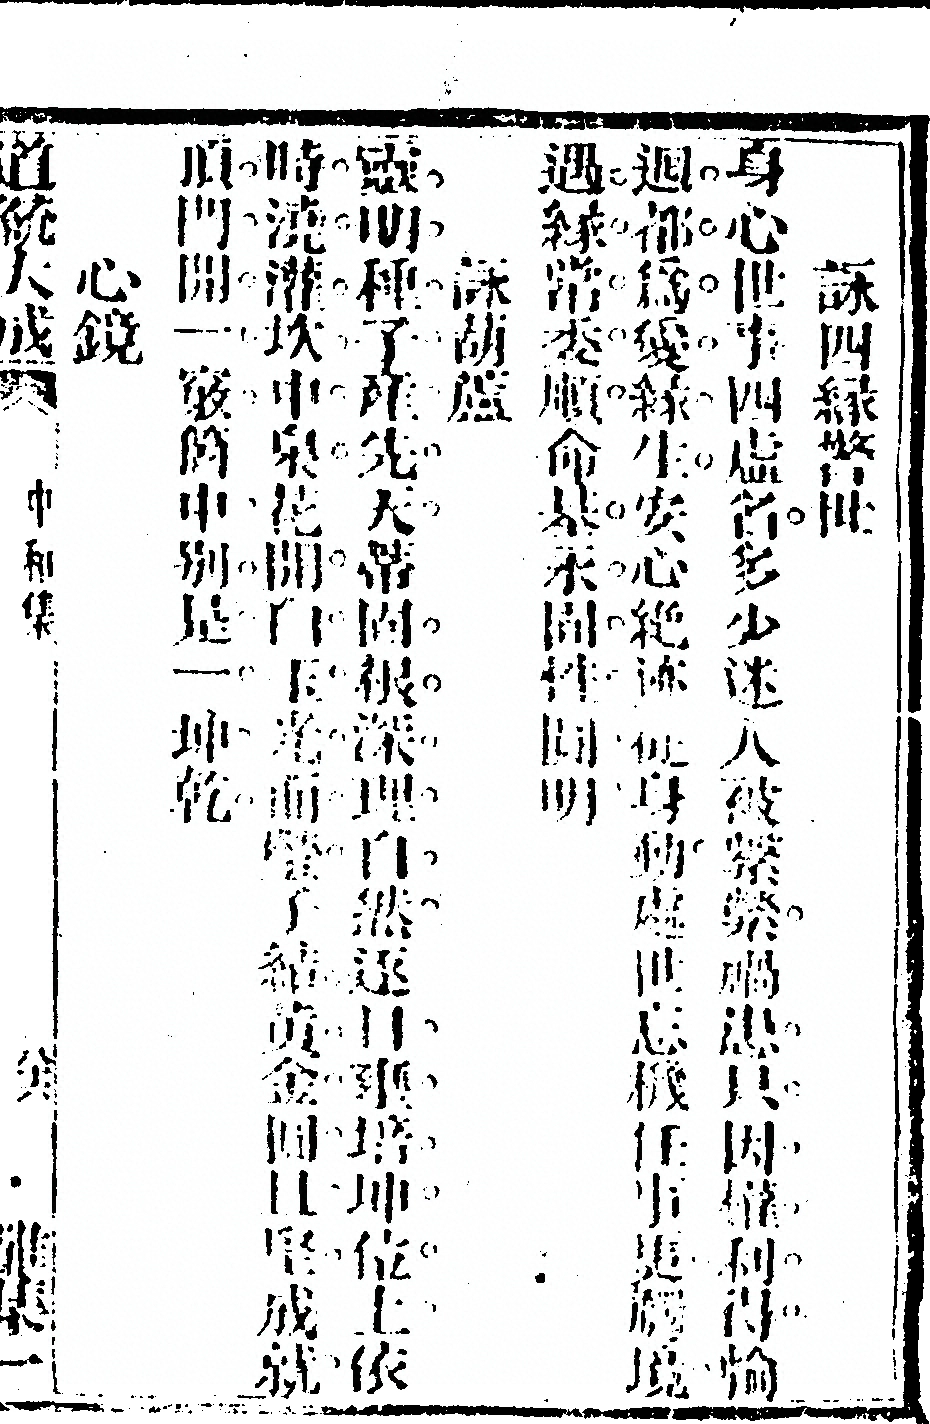 詠四緣警世
身心世事四虛名多少迷人被繫縈禍患只因權利得輪
迴都爲愛緣生安心絕迹從身動處世忘機任事更觸境
遇緣常委順命基永固性圓明
詠葫蘆
靈明種子產先天蒂固根深理自然逐日壅培坤位土依
時澆灌坎中泉花開白玉光而瑩子結黃金圓且堅成就
頂門開一竅箇中別是一坤乾
心鏡
道統大成 中和集 集一